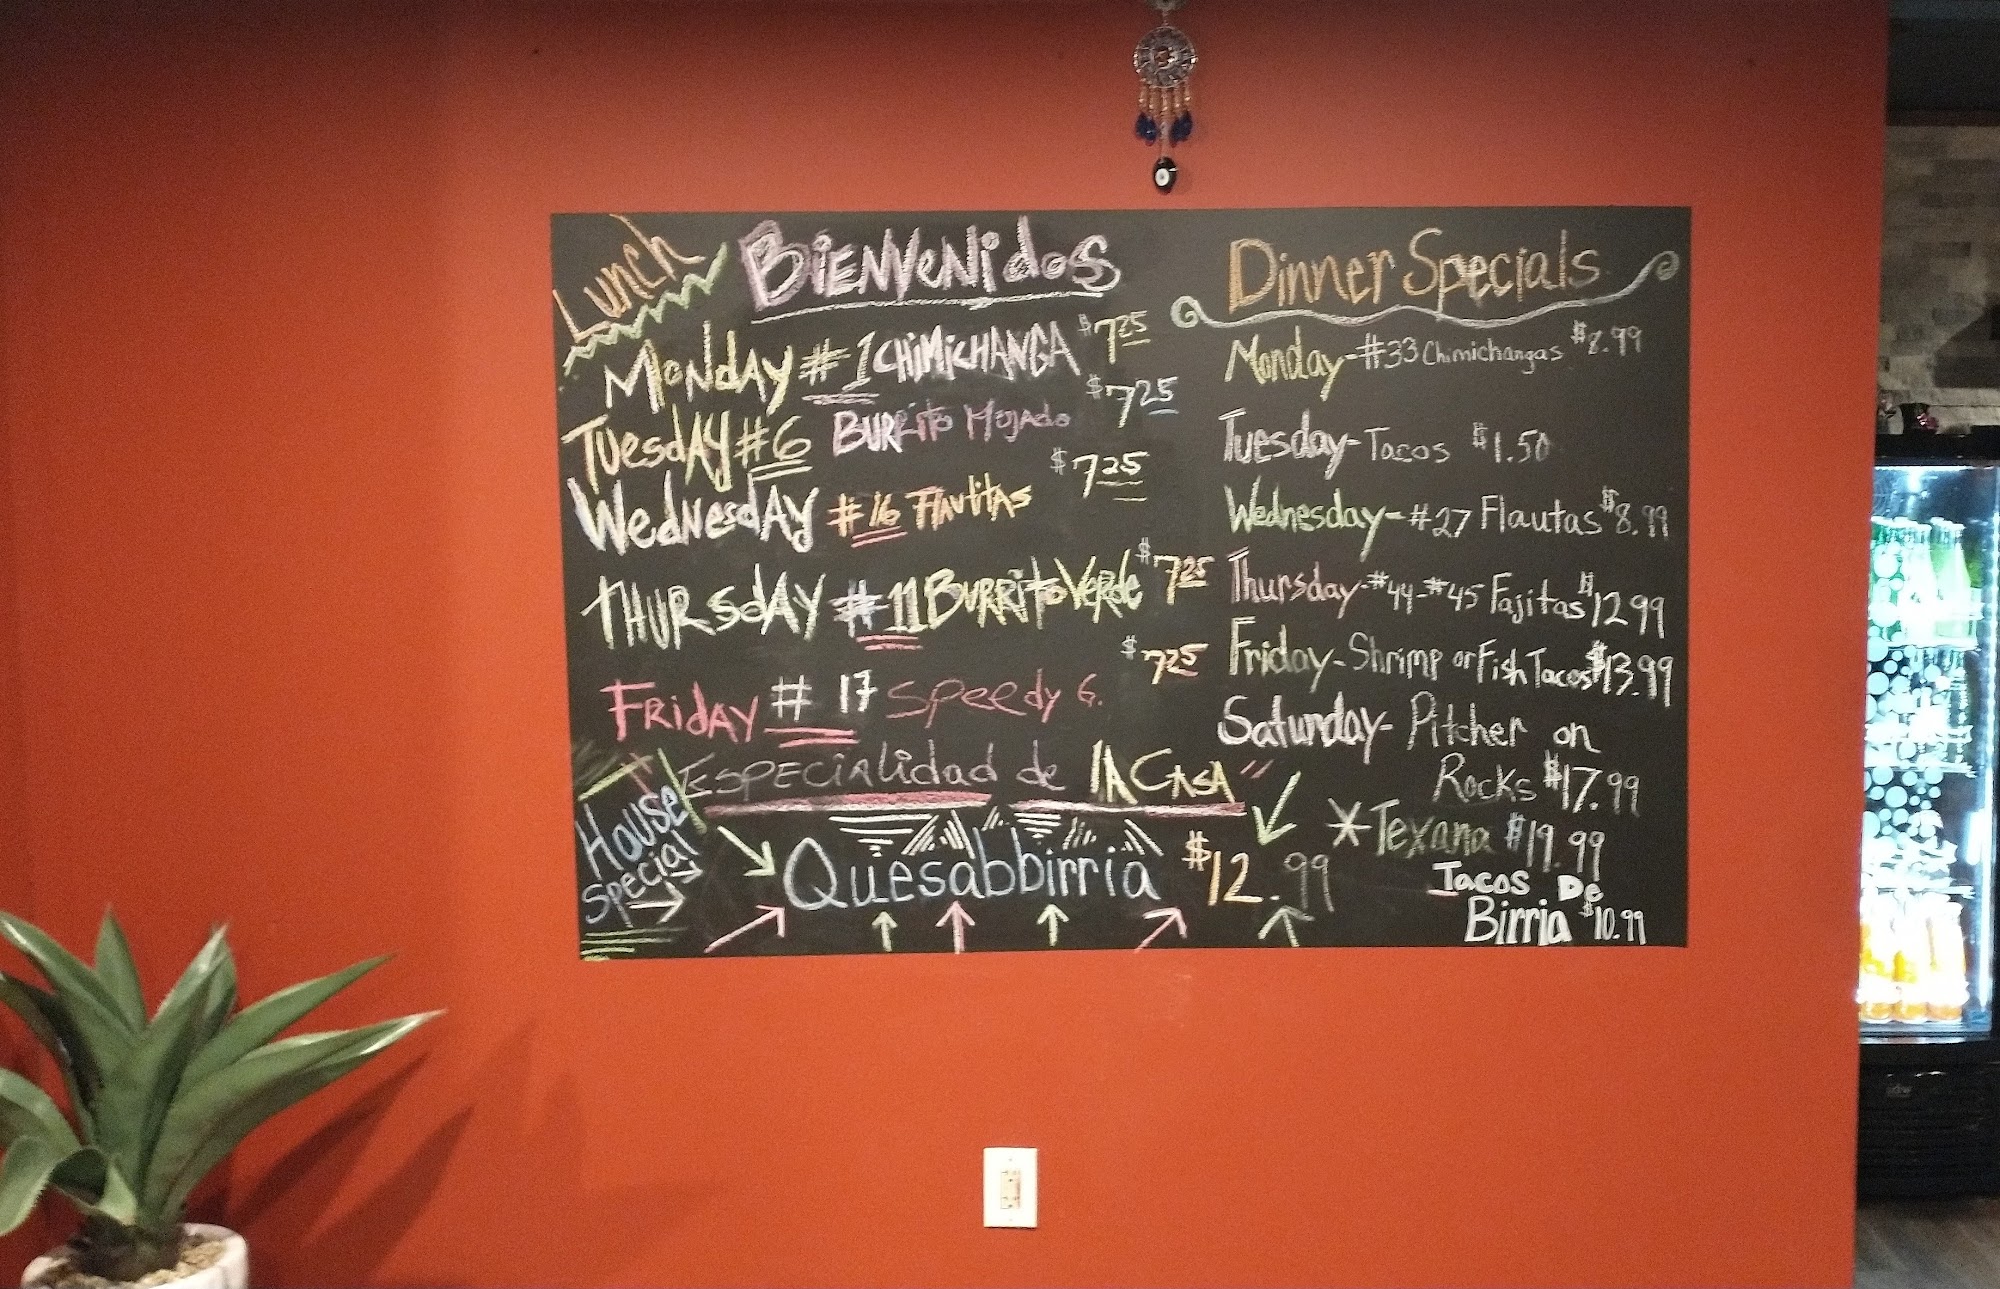 Lunch
BIENVENidos
MONDAY #1 CHiMiCHANGA $7.25
TUesdAY #6 BURRito Mojado $7.25
WedNesdAY #16 FlAUtitAs $7.25
THURsdAY #11 BURRito VeRde $7.25
FRidAY #17 Speedy G. $7.25
"ESPECiAlidad de lA CASA"
House
Special
Quesabbirria $12.99
Dinner Specials
Monday-#33 Chimichangas $8.99
Tuesday-Tacos $1.50
Wednesday-#27 Flautas $8.99
Thursday-#44-#45 Fajitas $12.99
Friday-Shrimp or Fish Tacos $13.99
Saturday-Pitcher on
Rocks $17.99
*Texana $19.99
Tacos De
Birria $10.99